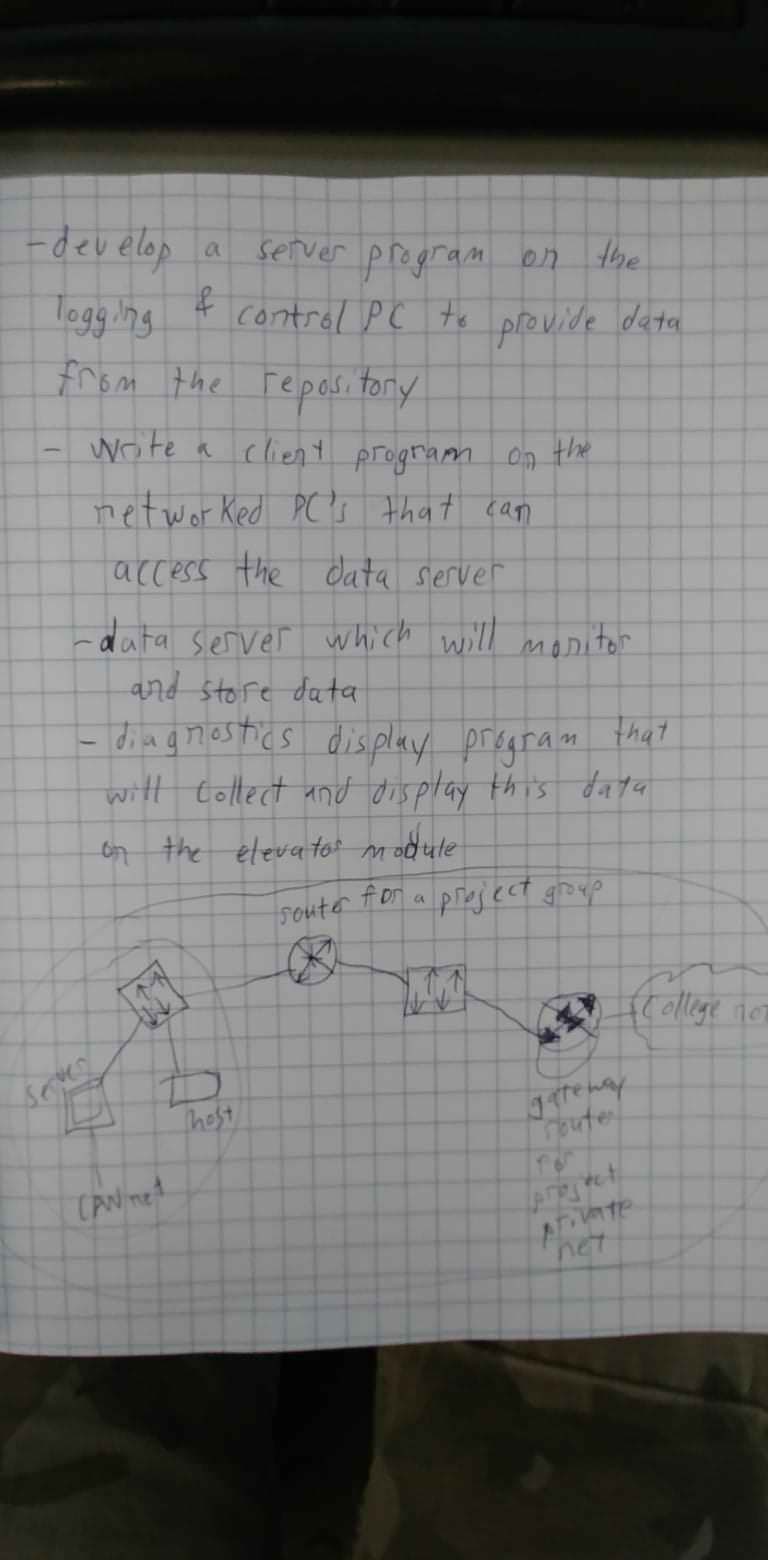 - develop a server program on the
logging & control PC to provide data
from the repository
- Write a client program on the
networked PC's that can
access the data server
- data server which will monitor
and store data
- diagnostics display program that
will collect and display this data
on the elevator module
router for a project group
College
server
host
CAN net
gateway
router
for
project
private
net